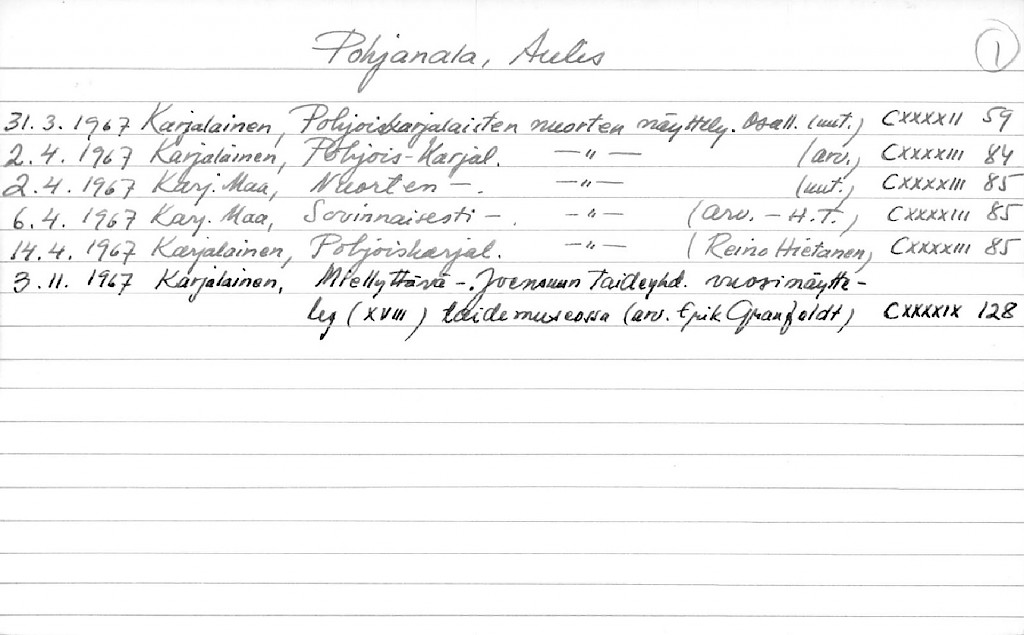 Pohjanala, Aulis 1
31.3.1967 Karjalainen, Pohjoiskarjalaisten nuorten näyttely. Osall. (uut.) CXXXXII 59
2.4.1967 Karjalainen, Pohjois-Karjal. —"— (arv.) CXXXXIII 84
2.4.1967 Karj. Maa, Nuorten —. —"— (uut.) CXXXXIII 85
6.4.1967 Karj. Maa, Sovinnaisesti —. —"— (arv. – H.T.) CXXXXIII 85
14.4.1967 Karjalainen, Pohjoiskarjal. —"— (Reino Hietanen) CXXXXIII 85
3.11.1967 Karjalainen, Miellyttävä —. Joensuun Taideyhd. vuosinäytte-
ly (XVIII) taidemuseossa (arv. Erik Granfeldt) CXXXXIX 128